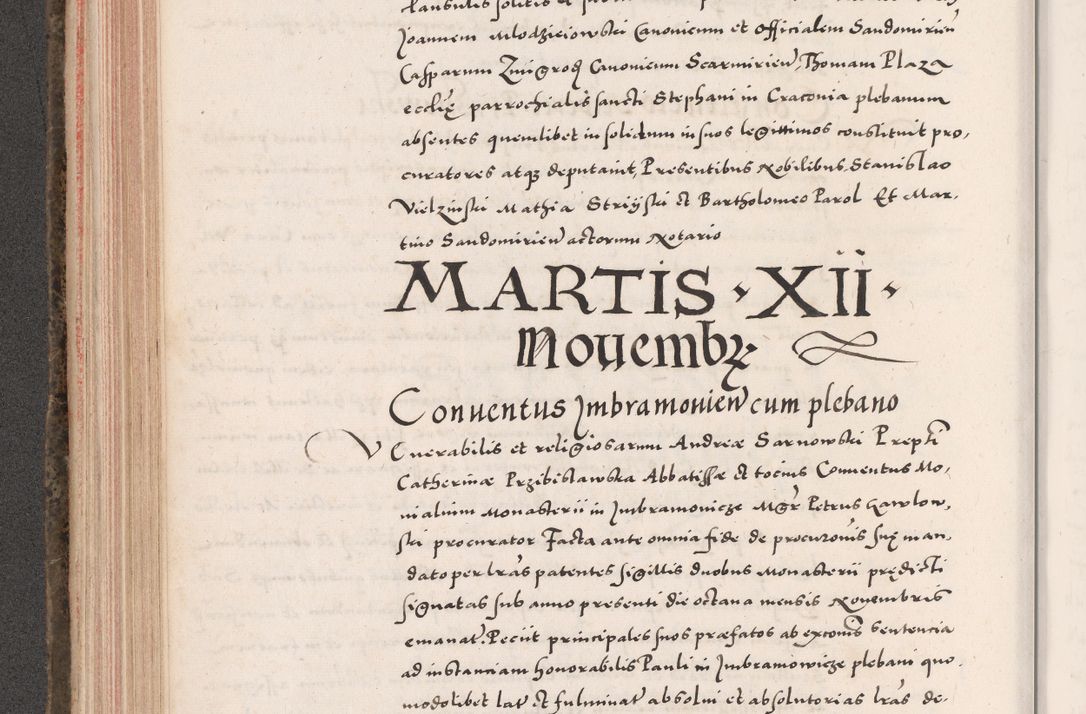 Joannem Mlodzieiowski Canonicum et Officialem Sandomirien̄
Casparum Zmigrod Canonicum Scarmirien̄, Thomam Plaza
ecclię parrochialis sancti Stephani in Cracouia plebanum
absentes quemlibet in solidum in suos legittimos constituit pro,
curatores atqȝ deputauit, Presentibus Nobilibus, Stanislao
Vielzinski Mathia Strijski et Bartholomeo Parol Et Mar,
tino Sandomirien̄ actorum Notario
MARTIS · XII ·
Nouembrꝭ
Conuentus Jmbramouien̄ cum plebano
Venerabilis et religiosarum Andreæ Sarnowski Prepti
Catherinæ Przibislawska Abbatissæ et tocius Conuentus Mo,
nialium Monasterii in Jmbramowicze Mgr̄ Petrus Gawlow,
ski procurator Facta ante omnia fide de procuronis suę man,
dato per lrās patentes sigillis duobus Monasterii prędicti
signatas sub anno presenti die octaua mensis Nouembris
emanat̄. Peciit principales suos præfatos ab exconis sentencia
ad instanciam honorabilis Pauli in Jmbramowicze plebani quo,
modolibet lat̄ et fulminat̄ absolui et absolutorias lrās de,